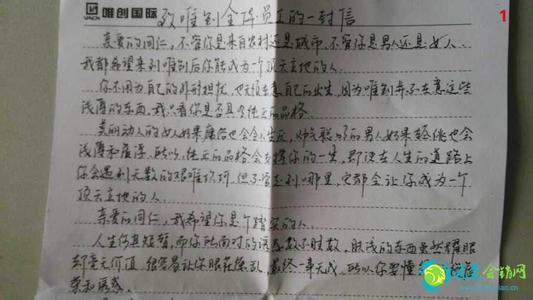 VACN 唯创国际 致唯创全体员工的一封信
1
亲爱的同仁,不管你是来自农村还是城市,不管你是男人还是女人
我都希望来到唯创后你能成为一个顶天立地的人.
你不用为自己的外形担忧,也无须在意自己的出生,因为唯创并不在意这些
浅薄的东西,我只看你是否具备纯正的品格
美丽动人的女人如果庸俗也会令人生厌,如果轻佻也会
浅薄和 所以,纯正的品格会支撑你的一生,即使在人生的道路上
你会遇到无数的艰难坎坷,但不管走到哪里,它都会让你成为一个
顶天立地的人.
亲爱的同仁,我希望你是个踏实的人.
人生何其短暂,而你所面对的诱惑数不胜数,肤浅的东西虽然耀眼
却毫无价值,很容易让你眼花缭乱,最终一事无成,所以你要懂得
和诱惑.
会销网